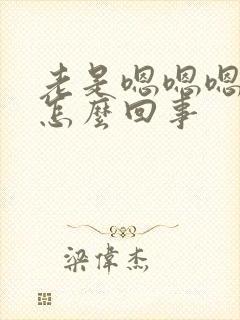 老是嗯嗯嗯
怎麼回事
梁偉杰